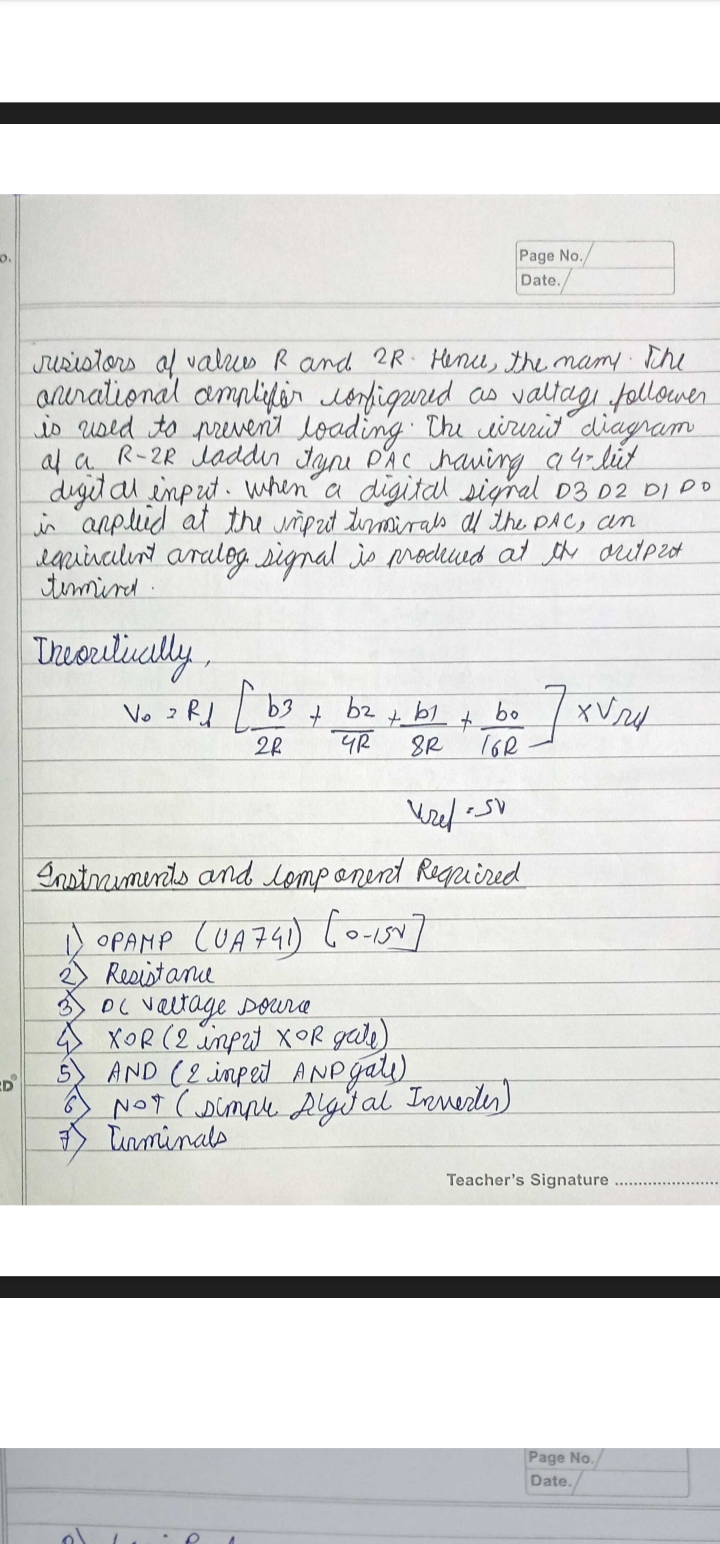 o.
Page No.
Date.
resistors of values R and 2R. Hence, the name. The
operational amplifier configured as voltage follower
is used to prevent loading. The circuit diagram
of a R-2R ladder type DAC having a 4-bit
digital input. When a digital signal D3 D2 D1 D0
is applied at the input terminals of the DAC, an
equivalent analog signal is produced at the output
terminal.
Theoretically,
Vo = Rf [ b3/2R + b2/4R + b1/8R + b0/16R ] x Vref
Vref = 5V
Instruments and Component Required
1) OPAMP (UA741) [0-15V]
2) Resistance
3) DC voltage source
4) XOR (2 input XOR gate)
5) AND (2 input AND gate)
6) NOT (simple Digital Inverter)
7) Terminals
Teacher's Signature ......................
Page No.
Date.